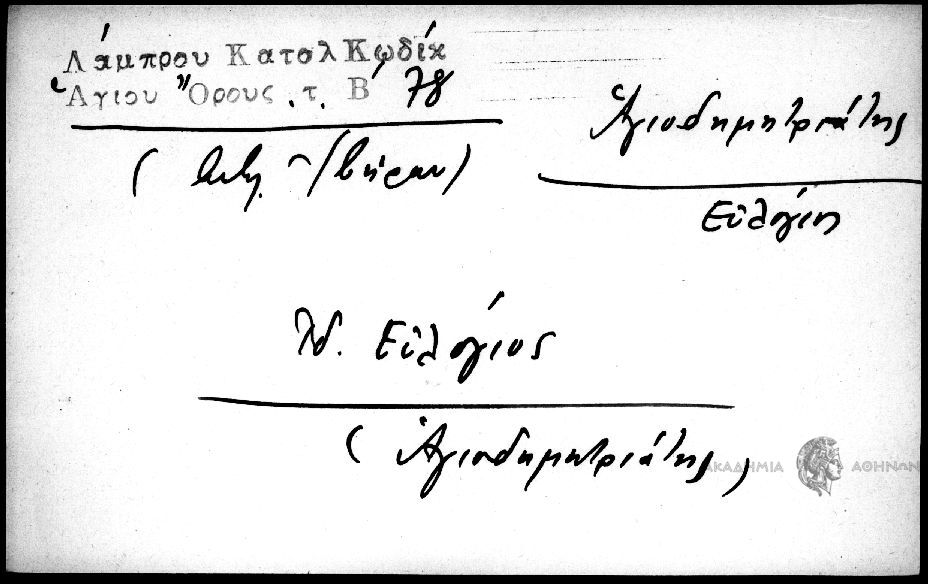 Λάμπρου Κατολ Κωδίκ
Ἁγίου Ὄρους . τ. Β' 78
Ἁγιοδημητριάτης
Εὐλόγιος
Εὐλόγιος
( Ἁγιοδημητριάτης )
ΑΚΑΔΗΜΙΑ ΑΘΗΝΩΝ